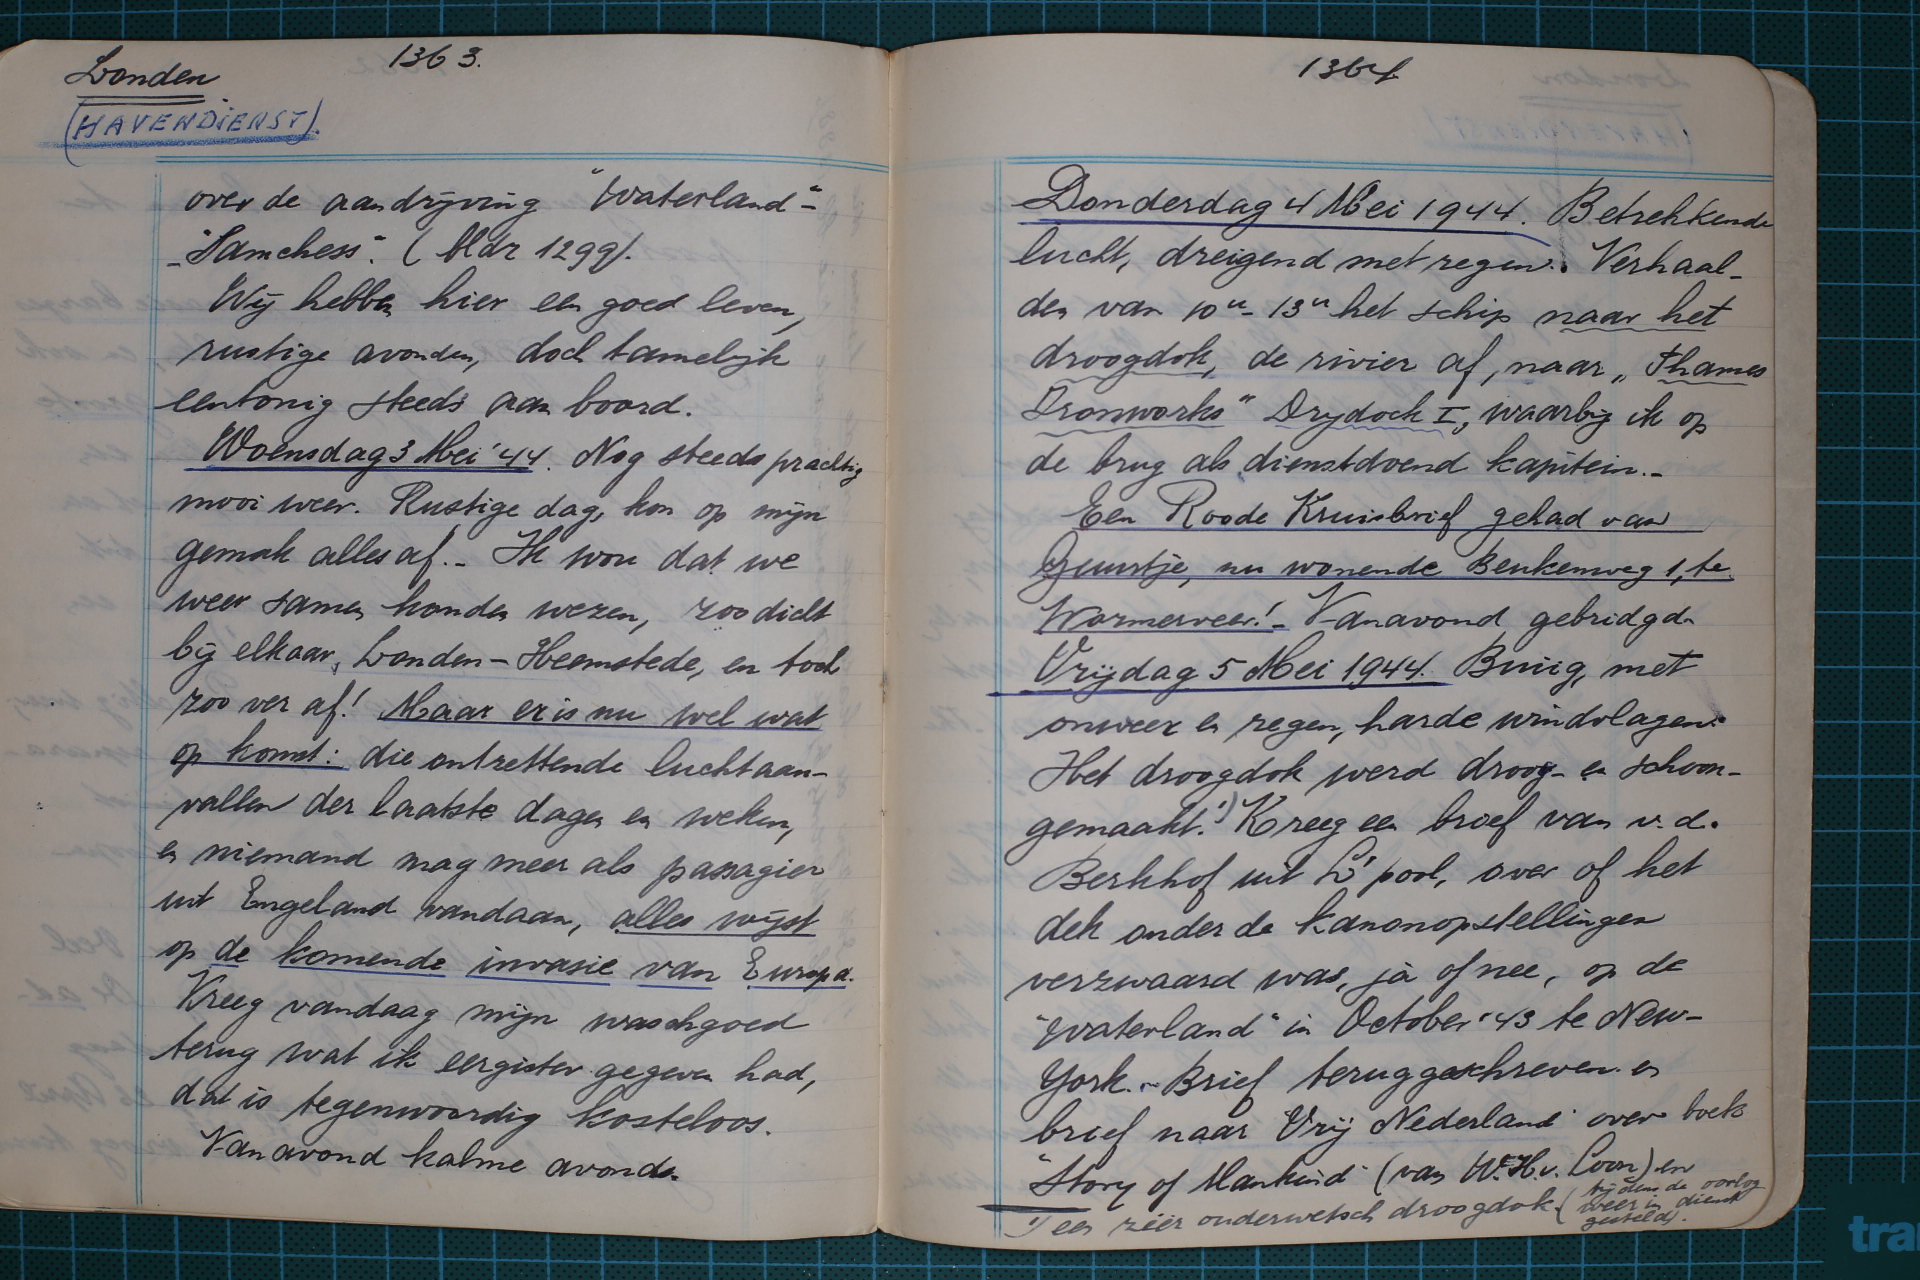 Londen
1363.
(HAVENDIENST).
over de aandrijving "Waterland"-
-"Samchess". (bldz 1299).
Wij hebben hier een goed leven,
rustige avonden, doch tamelijk
eentonig steeds aan boord.
Woensdag 3 Mei '44. Nog steeds prachtig
mooi weer. Rustige dag, kon op mijn
gemak alles af.- Ik wou dat we
weer samen konden wezen, zoo dicht
bij elkaar, Londen-Heemstede, en toch
zoo ver af! Maar er is nu wel wat
op komst: die ontzettende luchtaan-
vallen der laatste dagen en weken,
en niemand mag meer als passagier
uit Engeland vandaan, alles wijst
op de komende invasie van Europa.
Kreeg vandaag mijn waschgoed
terug wat ik eergister gegeven had,
dat is tegenwoordig kosteloos.
Vanavond kalme avond.
1364
Donderdag 4 Mei 1944. Betrekkende
lucht, dreigend met regen. Verhaal-
den van 10u- 13u het schip naar het
droogdok, de rivier af, naar „Thames
Ironworks" Drydock I, waarbij ik op
de brug als dienstdoend kapitein.-
Een Roode Kruisbrief gehad van
Guustje, nu wonende Beukenweg 1, te
Wormerveer!- Vanavond gebridgd.
Vrijdag 5 Mei 1944. Buiig, met
onweer en regen, harde windvlagen.
Het droogdok werd droog- en schoon-
gemaakt.¹) Kreeg een brief van v.d.
Berkhof uit L'pool, over of het
dek onder de kanonopstellingen
verzwaard was, ja of nee, op de
"Waterland" in October '43 te New-
York.- Brief teruggeschreven en
brief naar Vrij Nederland over boek
"Story of Mankind" (van W.H.v. Loon) en
¹) een zéér ouderwetsch droogdok. (tijdens de oorlog
weer in dienst
gesteld).
tra